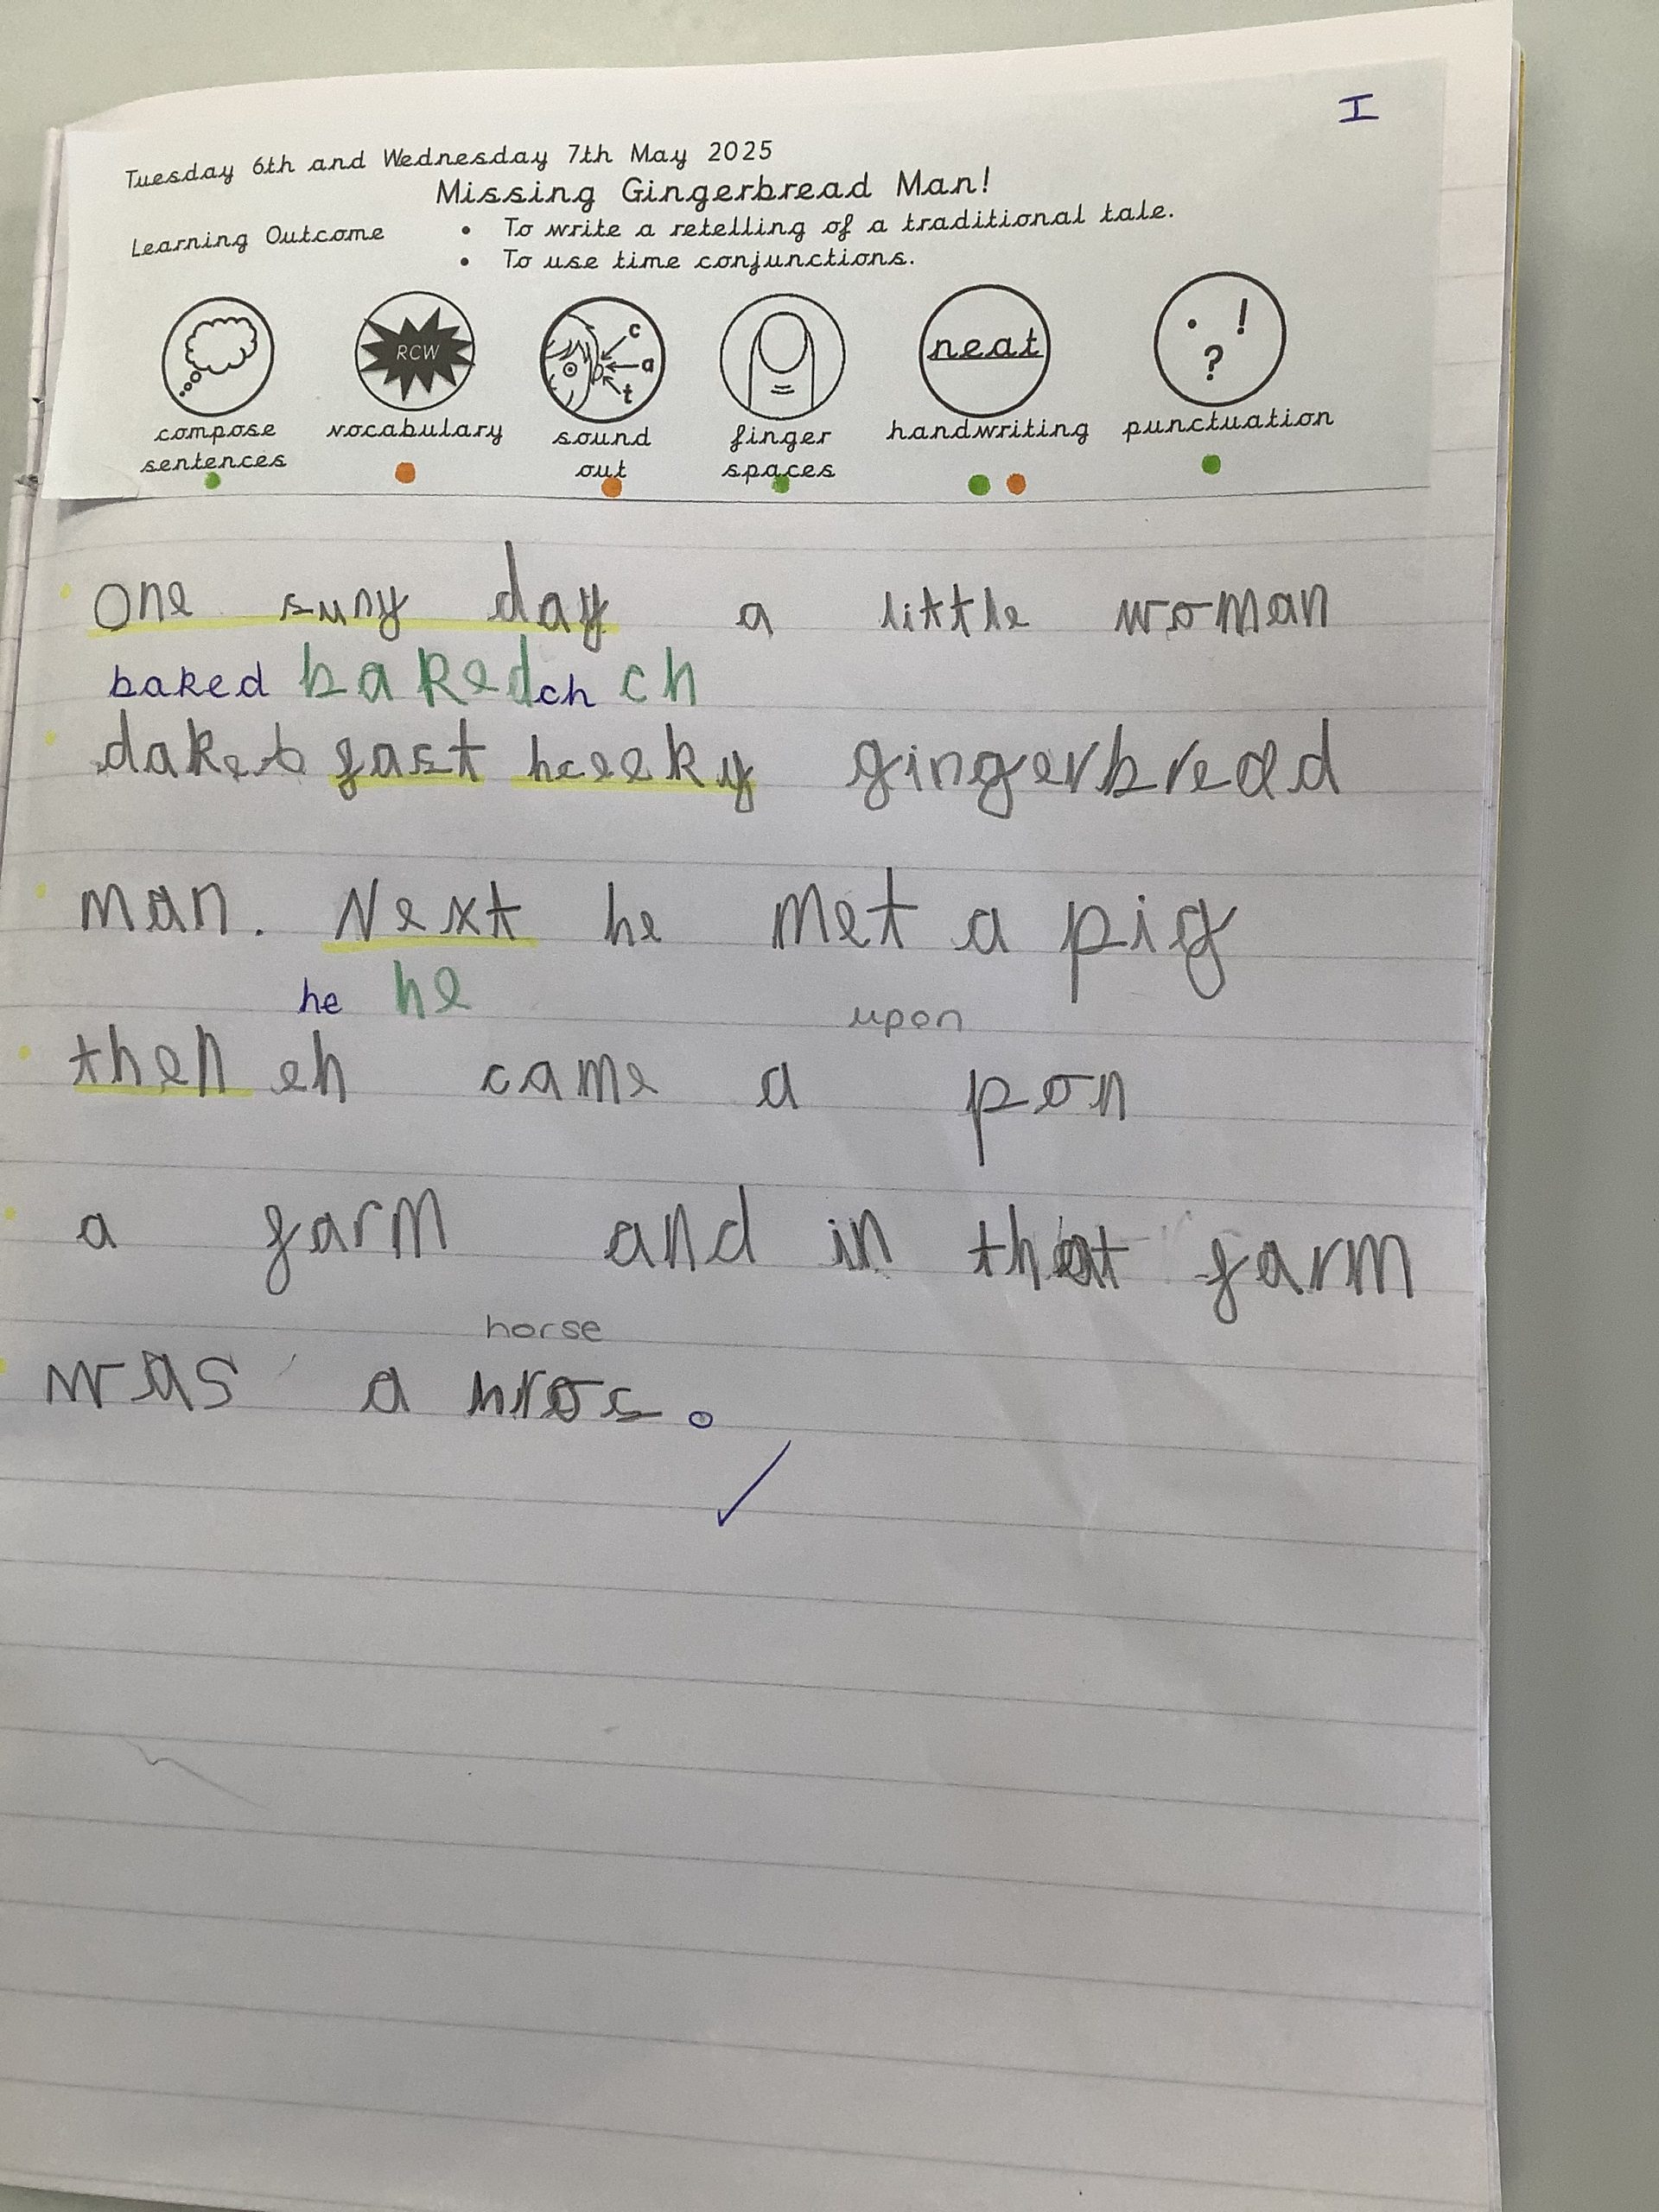 I
Tuesday 6th and Wednesday 7th May 2025
Missing Gingerbread Man!
Learning Outcome • To write a retelling of a traditional tale.
• To use time conjunctions.
RCW c a t neat . ! ?
compose sentences vocabulary sound out finger spaces handwriting punctuation
One suny day a little woman
baked baked ch ch
daket fast hceeky gingerbread
man. Next he met a pig
he he upon
then eh came a pon
a farm and in that farm
horse
was a hros.